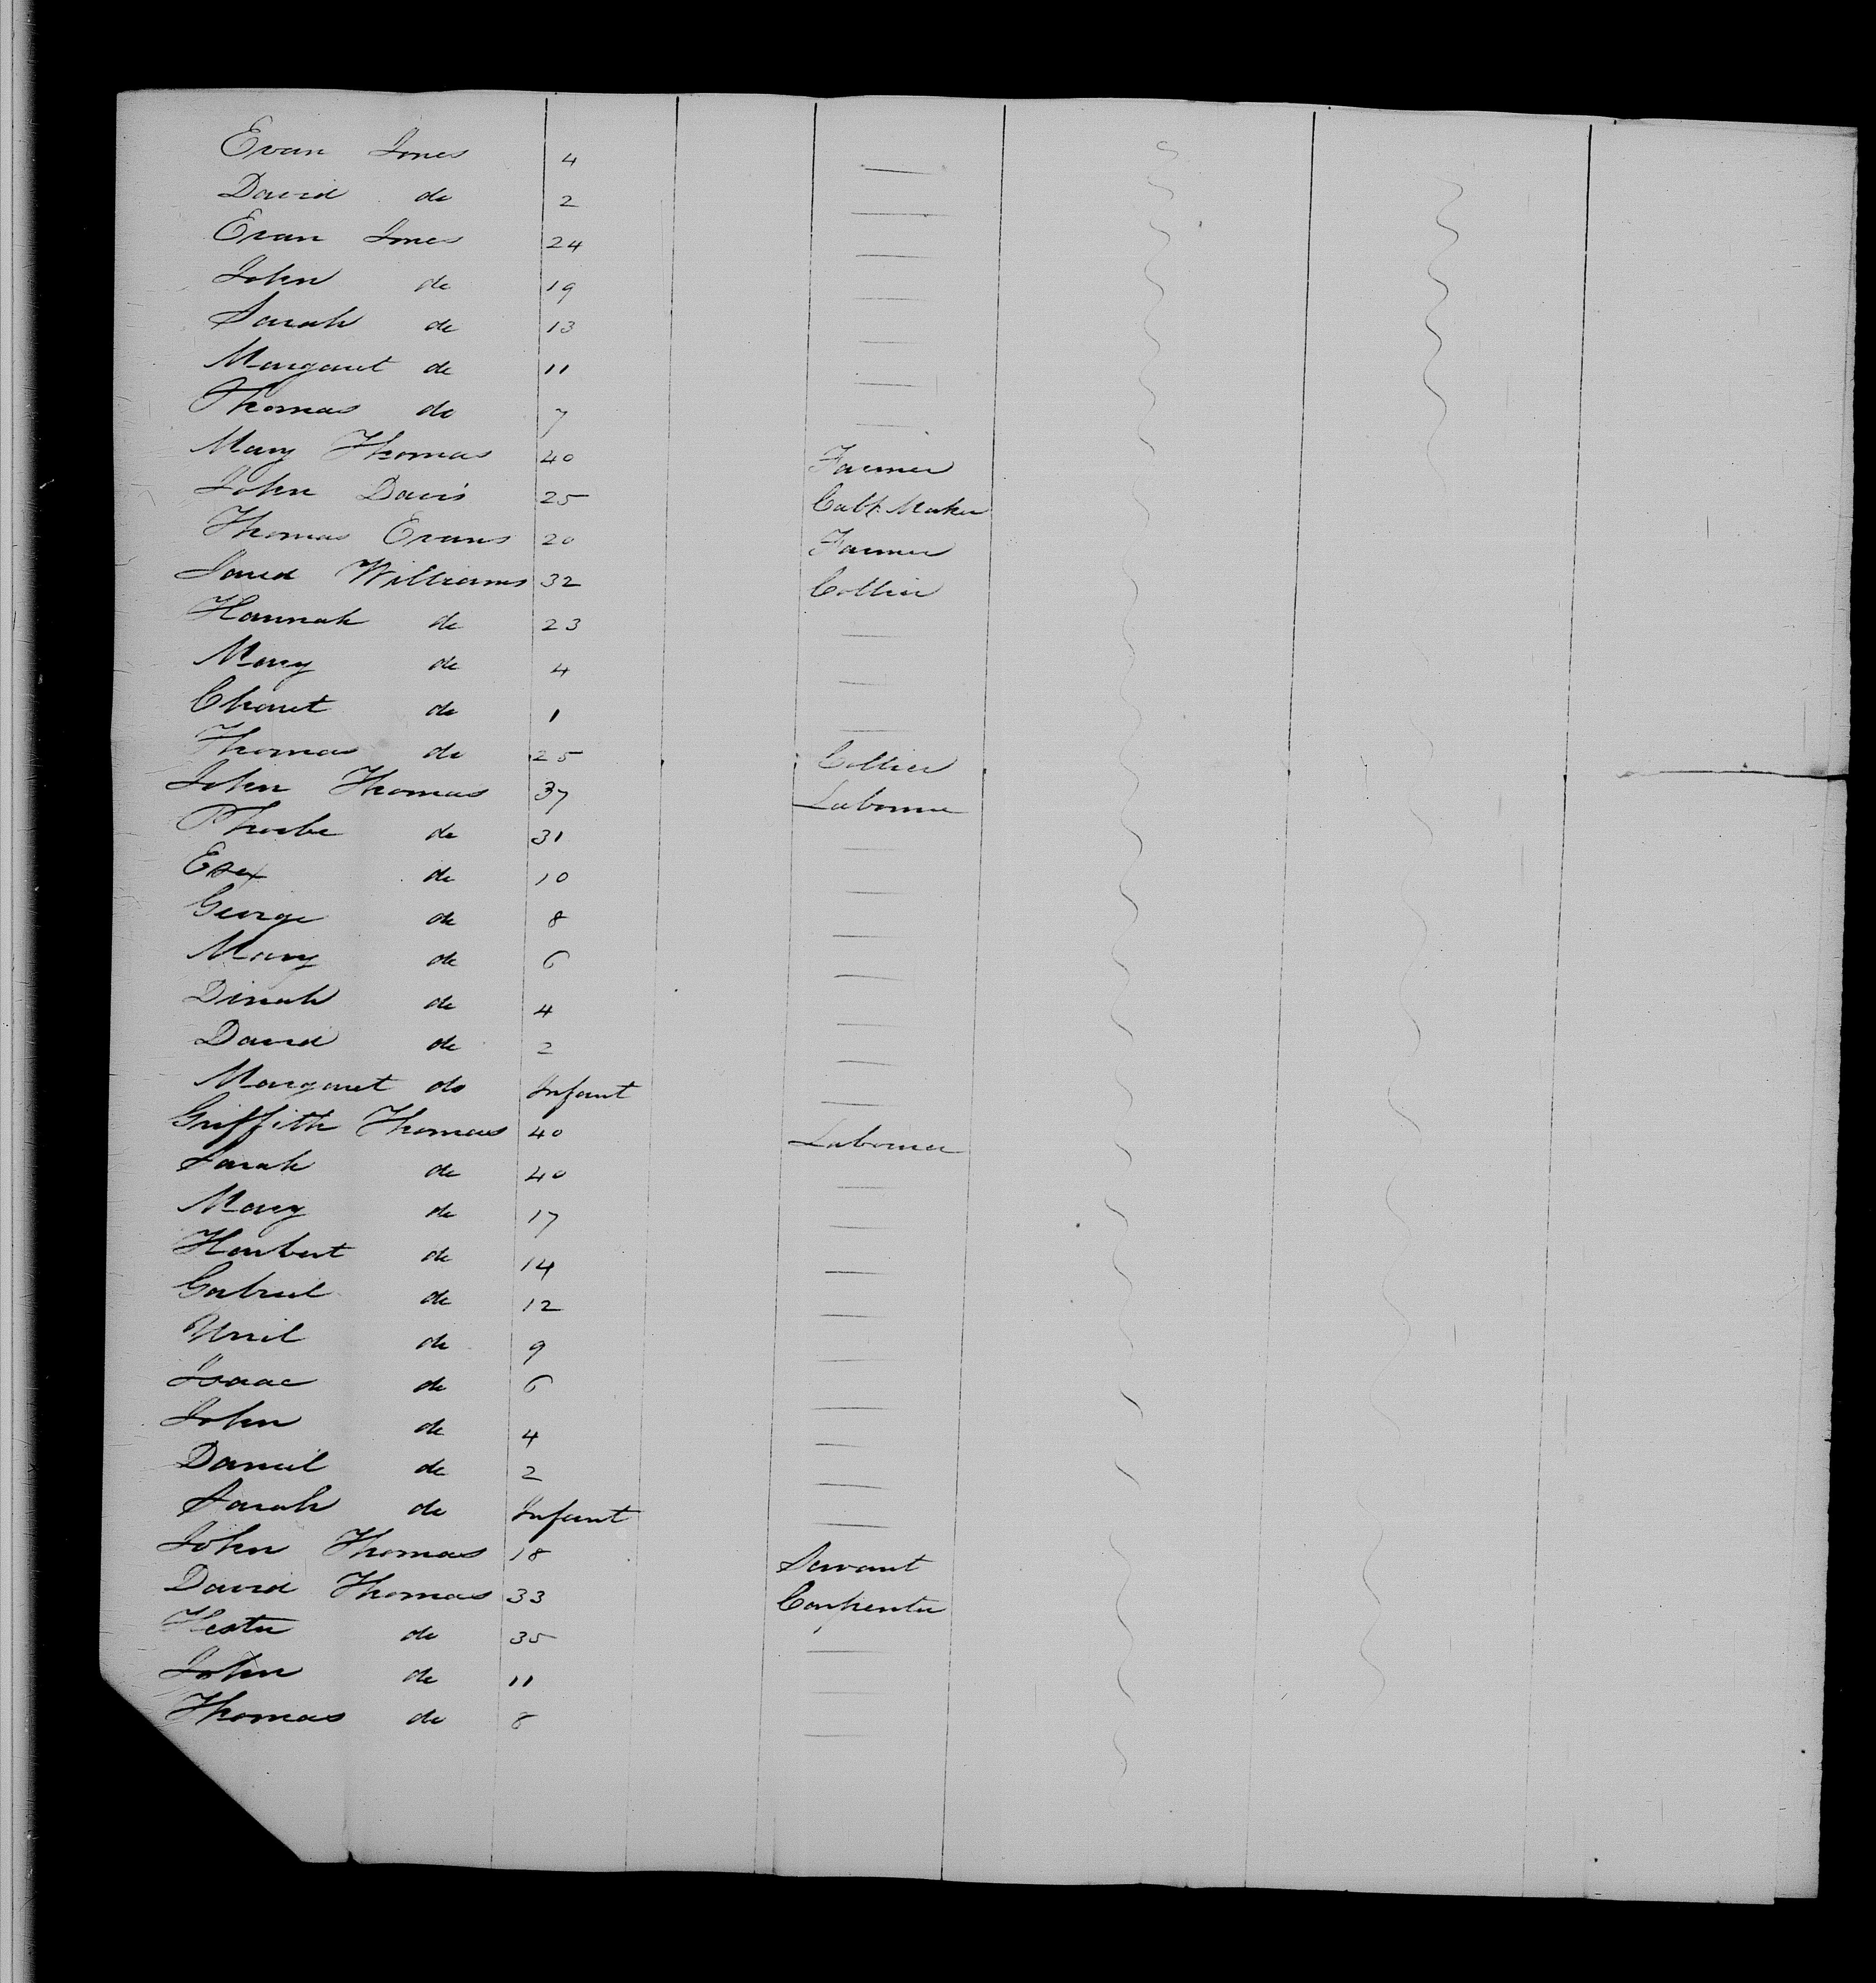 Evan Jones 4
David do 2
Evan Jones 24
John do 19
Sarah do 13
Margaret do 11
Thomas do 7
Mary Thomas 40 Farmer
John Davis 25 Cabt. Maker
Thomas Evans 20 Farmer
Williams 32 Collier
Hannah do 23
Mary do 4
do 1
Thomas do 25 Collier
John Thomas 37 Labourer
Phoebe do 31
do 10
George do 8
Mary do 6
Dinah do 4
David do 2
Margaret do Infant
Griffith Thomas 40 Labourer
Sarah do 40
Mary do 17
Harbert do 14
Gabriel do 12
Uriel do 9
Isaac do 6
John do 4
Daniel do 2
Sarah do Infant
John Thomas 18 Servant
David Thomas 33 Carpenter
Hester do 35
John do 11
Thomas do 8